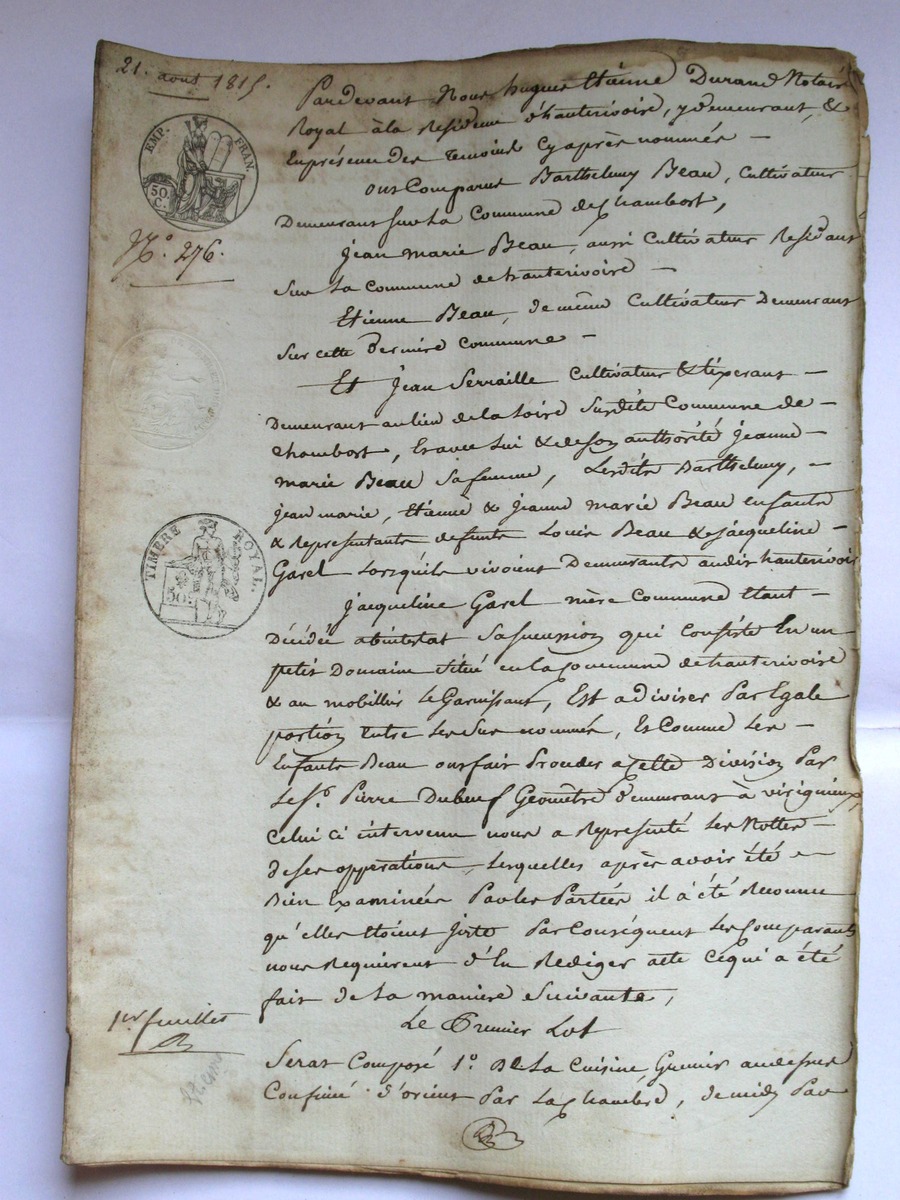 21. aout 1815.
EMP. FRAN.
50 C.
N.º 276.
TIMBRE ROYAL.
50.
Pardevant Nous hugues Etienne Durand Notaire
Royal à la Residence d'hauterivoire, y demeurant, &
En présence des Temoins Cy après nommés —
ont Comparus Barthelemy Beau, Cultivateur
Demeurant sur La Commune de Chambost,
jean marie Beau, aussi Cultivateur Residant
sur La Commune de hauterivoire —
Etienne Beau, de même Cultivateur Demeurant
sur cette dernière Commune —
Et Jean Serraille Cultivateur & tixerant —
Demeurant au lieu de la Loire Susdite Commune de —
Chambost, En avec Lui & de son authorité Jeanne
marie Beau sa femme, Lesdits Barthelemy, —
jean marie, Etienne & jeanne marie Beau enfants
& Representants defunts Louis Beau & jacqueline —
Garel Lorsqu'ils vivoient Demeurants audit hauterivoire
jacqueline Garel mère Commune Etant —
Décédée abintestat sa succession qui Consiste En un
petit Domaine situé en la Commune de hauterivoire
& au mobillier Le Garnissant, Est a diviser Par Egale
portion entre Les Sus nommés, Et Comme Les —
Enfants Beau ont fait Proceder a Cette Division Par
Le S.r Pierre Dubeuf Geomètre demeurant à virigneux,
Celui ci intervenu nous a Representé Les Nottes —
de ses opperations, Lesquelles après avoir été —
Bien Examinées Par les Parties il a été Reconnu
qu'elles étoient juste Par Conséquent Les Comparants
nous Requierent d'En Rediger acte Ce qui a été
fait de La manière Suivante,
Le Premier Lot
Serat Composé 1.º De La Cuisine, Grenier audessus
Confiné d'orient Par La Chambre, de midy Par
1er feuillet